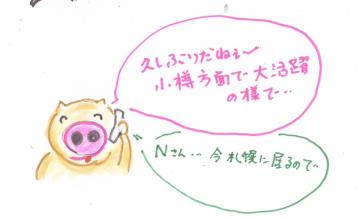 久しぶりだねぇ〜
小樽方面で大活躍
の様で…
Nさん…今札幌に居るので…